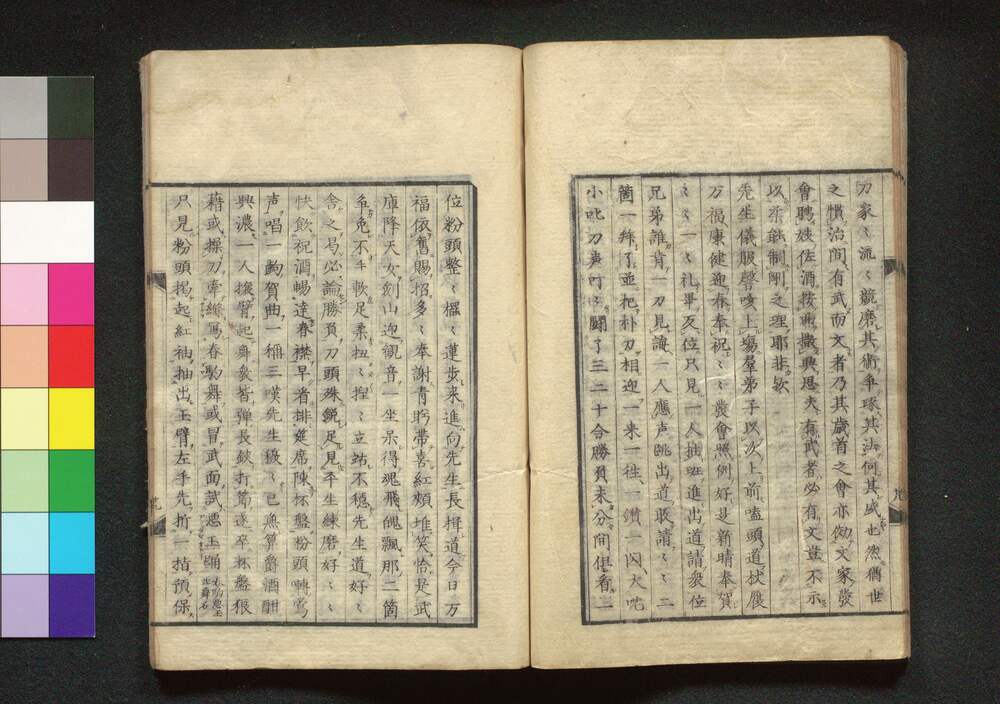 刀家々流々競磨其術爭琢其法何其盛也然猶世
之慣治間有武而文者乃其歲首之會亦傚文家發
會聘妓佐酒按曲撒興思夫有武者必有文豈不示
以柔能制剛之理耶非歟
先生儀服聲咳上場羣弟子以次上前嗑頭道杖履
万福康健迎春奉祝々々發會照例好是新晴奉賀
々々一々礼畢反位只見一人抽班進出道請衆位
兄弟誰肯一刀見識一人應声跳出道敢請々々二
箇一拜了並把朴刀相迎一來一往一鑽一閃大咤
小叱刀声叮々鬪了三二十合勝負未分間俱看二
位粉頭整々櫑々蓮步來進向先生長揖道今日万
福依舊賜招多々奉謝青眄帶喜紅頰堆笑恰是武
庫降天女劍山迎觀音一坐呆得魂飛魄飄那二箇
爭免不手軟足柔扭々捏々立站不穩先生道好々
舍之曷必論勝負刀頭殊銳足見平生練磨好々々
快飲祝酒暢達春襟早者排筵席陳杯盤粉頭轉鶯
声唱一齣賀曲一唱三嘆先生極々已無算爵酒酣
興濃一人援臂起舞衆皆彈長鋏打箭遂卒杯盤狼
藉或操刀牽線寫春駒舞或冒武面試惡玉踊
尺見粉頭揚起紅袖抽出玉臂左手先折一指預保